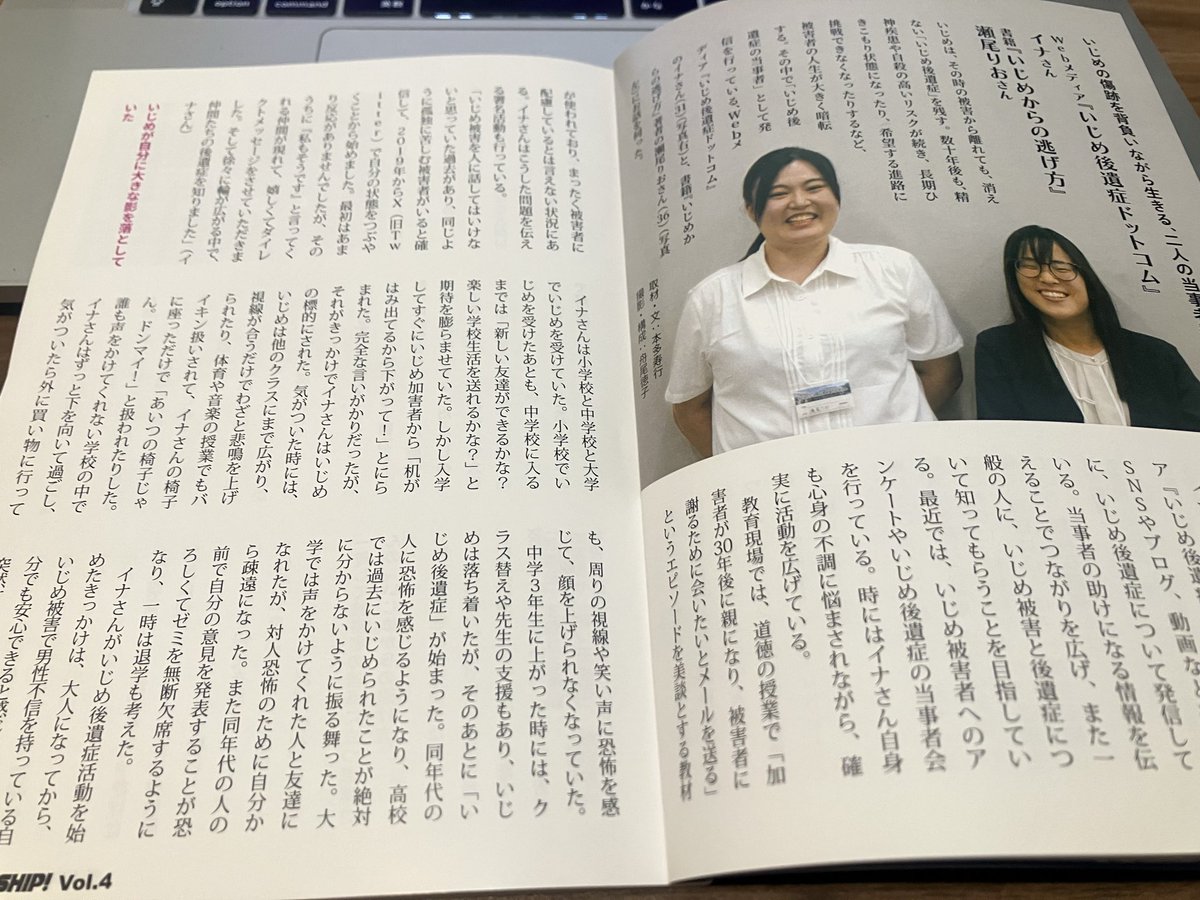 option
command
英数
かな
いじめの傷跡を背負いながら生きる、二人の当事者
Webメディア『いじめ後遺症ドットコム』
イナさん
書籍『いじめからの逃げ方』
瀬尾りおさん
いじめは、その時の被害から離れても、消え
ない「いじめ後遺症」を残す。数十年後も、精
神疾患や自殺の高いリスクが続き、長期ひ
きこもり状態になったり、希望する進路に
挑戦できなくなったりするなど、
被害者の人生が大きく暗転
する。その中で「いじめ後
遺症の当事者」として発
信を行っている、Webメ
ディア『いじめ後遺症ドットコム』
のイナさん(31)(写真右)と、書籍『いじめか
らの逃げ方』著者の瀬尾りおさん(36)(写真
左)にお話を伺った。
取材・文:本多寿行
撮影・構成:舟尾徳子
ア『いじめ後遺
SNSやブログ、動画な
に、いじめ後遺症について発信して
いる。当事者の助けになる情報を伝
えることでつながりを広げ、また一
般の人に、いじめ被害と後遺症につ
いて知ってもらうことを目指してい
る。最近では、いじめ被害者へのア
ンケートやいじめ後遺症の当事者会
を行っている。時にはイナさん自身
も心身の不調に悩まされながら、確
実に活動を広げている。
教育現場では、道徳の授業で「加
害者が30年後に親になり、被害者に
謝るために会いたいとメールを送る」
というエピソードを美談とする教材
が使われており、まったく被害者に
配慮しているとは言えない状況にあ
る。イナさんはこうした問題を伝え
る署名活動も行っている。
「いじめ被害を人に話してはいけな
いと思っていた過去があり、同じよ
うに孤独に苦しむ被害者がいると確
信して、2019年からX(旧Tw
itter)で自分の状態をつぶや
くことから始めました。最初はあま
り反応がありませんでしたが、その
うちに『私もそうです』と言ってく
れる仲間が現れて、嬉しくてダイレ
クトメッセージをさせていただきま
した。そして徐々に輪が広がる中で、
仲間たちの後遺症を知りました」(イ
ナさん)
いじめが自分に大きな影を落として
いた
イナさんは小学校と中学校と大学
でいじめを受けていた。小学校でい
じめを受けたあとも、中学校に入る
までは「新しい友達ができるかな?
楽しい学校生活を送れるかな?」と
期待を膨らませていた。しかし入学
してすぐにいじめ加害者から「机が
はみ出てるから下がって!」とにら
まれた。完全な言いがかりだったが、
それがきっかけでイナさんはいじめ
の標的にされた。気がついた時には、
いじめは他のクラスにまで広がり、
視線が合うだけでわざと悲鳴を上げ
られたり、体育や音楽の授業でもバ
イキン扱いされて、イナさんの椅子
に座っただけで「あいつの椅子じゃ
ん。ドンマイ!」と扱われたりした。
誰も声をかけてくれない学校の中で
イナさんはずっと下を向いて過ごし、
気がついたら外に買い物に行って
も、周りの視線や笑い声に恐怖を感
じて、顔を上げられなくなっていた。
中学3年生に上がった時には、ク
ラス替えや先生の支援もあり、いじ
めは落ち着いたが、そのあとに「い
じめ後遺症」が始まった。同年代の
人に恐怖を感じるようになり、高校
では過去にいじめられたことが絶対
に分からないように振る舞った。大
学では声をかけてくれた人と友達に
なれたが、対人恐怖のために自分か
ら疎遠になった。また同年代の人の
前で自分の意見を発表することが恐
ろしくてゼミを無断欠席するように
なり、一時は退学も考えた。
イナさんがいじめ後遺症活動を始
めたきっかけは、大人になってから、
いじめ被害で男性不信を持っている自
分でも安心できると感じ
突然
SHIP! Vol.4